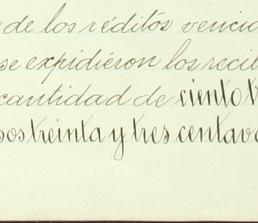 de los réditos vencid
se expidieron los recib
cantidad de ciento t
sos treinta y tres centavo